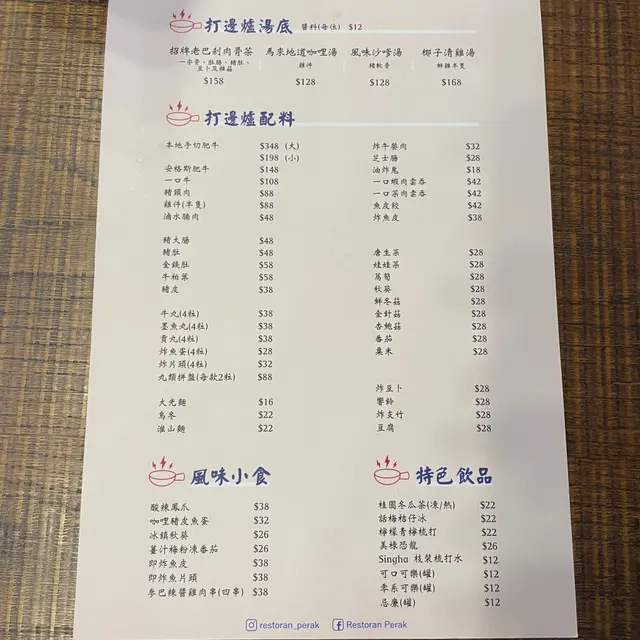 打邊爐湯底 醬料(每位) $12
招牌老巴剎肉骨茶 馬來地道咖哩湯 風味沙嗲湯 椰子清雞湯
一字骨、肚腩、豬肚、豆卜及雜菇 雞件 豬軟骨 鮮雞半隻
$158 $128 $128 $168
打邊爐配料
本地手切肥牛 $348 (大)
$198 (小)
安格斯肥牛 $148
一口牛 $108
豬頸肉 $88
雞件(半隻) $88
滷水腩肉 $48
豬大腸 $48
豬肚 $48
金錢肚 $58
牛柏葉 $58
豬皮 $38
牛丸(4粒) $38
墨魚丸(4粒) $38
貢丸(4粒) $38
炸魚蛋(4粒) $28
炸片頭(4粒) $32
丸類拼盤(每款2粒) $88
大光麵 $16
烏冬 $22
淮山麵 $22
炸午餐肉 $32
芝士腸 $28
油炸鬼 $18
一口蝦肉雲吞 $42
一口菜肉雲吞 $42
魚皮餃 $42
炸魚皮 $38
唐生菜 $28
娃娃菜 $28
茼蒿 $28
秋葵 $28
鮮冬菇 $28
金針菇 $28
杏鮑菇 $28
番茄 $28
粟米 $28
炸豆卜 $28
響鈴 $28
炸支竹 $28
豆腐 $28
風味小食
酸辣鳳爪 $38
咖哩豬皮魚蛋 $32
冰鎮秋葵 $26
薑汁梅粉凍番茄 $26
即炸魚皮 $38
即炸魚片頭 $38
參巴辣醬雞肉串(四串) $38
特色飲品
桂圓冬瓜茶(凍/熱) $22
話梅桔仔冰 $22
檸檬青檸梳打 $22
美祿恐龍 $26
Singha 枝裝梳打水 $12
可口可樂(罐) $12
零系可樂(罐) $12
忌廉(罐) $12
restoran_perak Restoran Perak